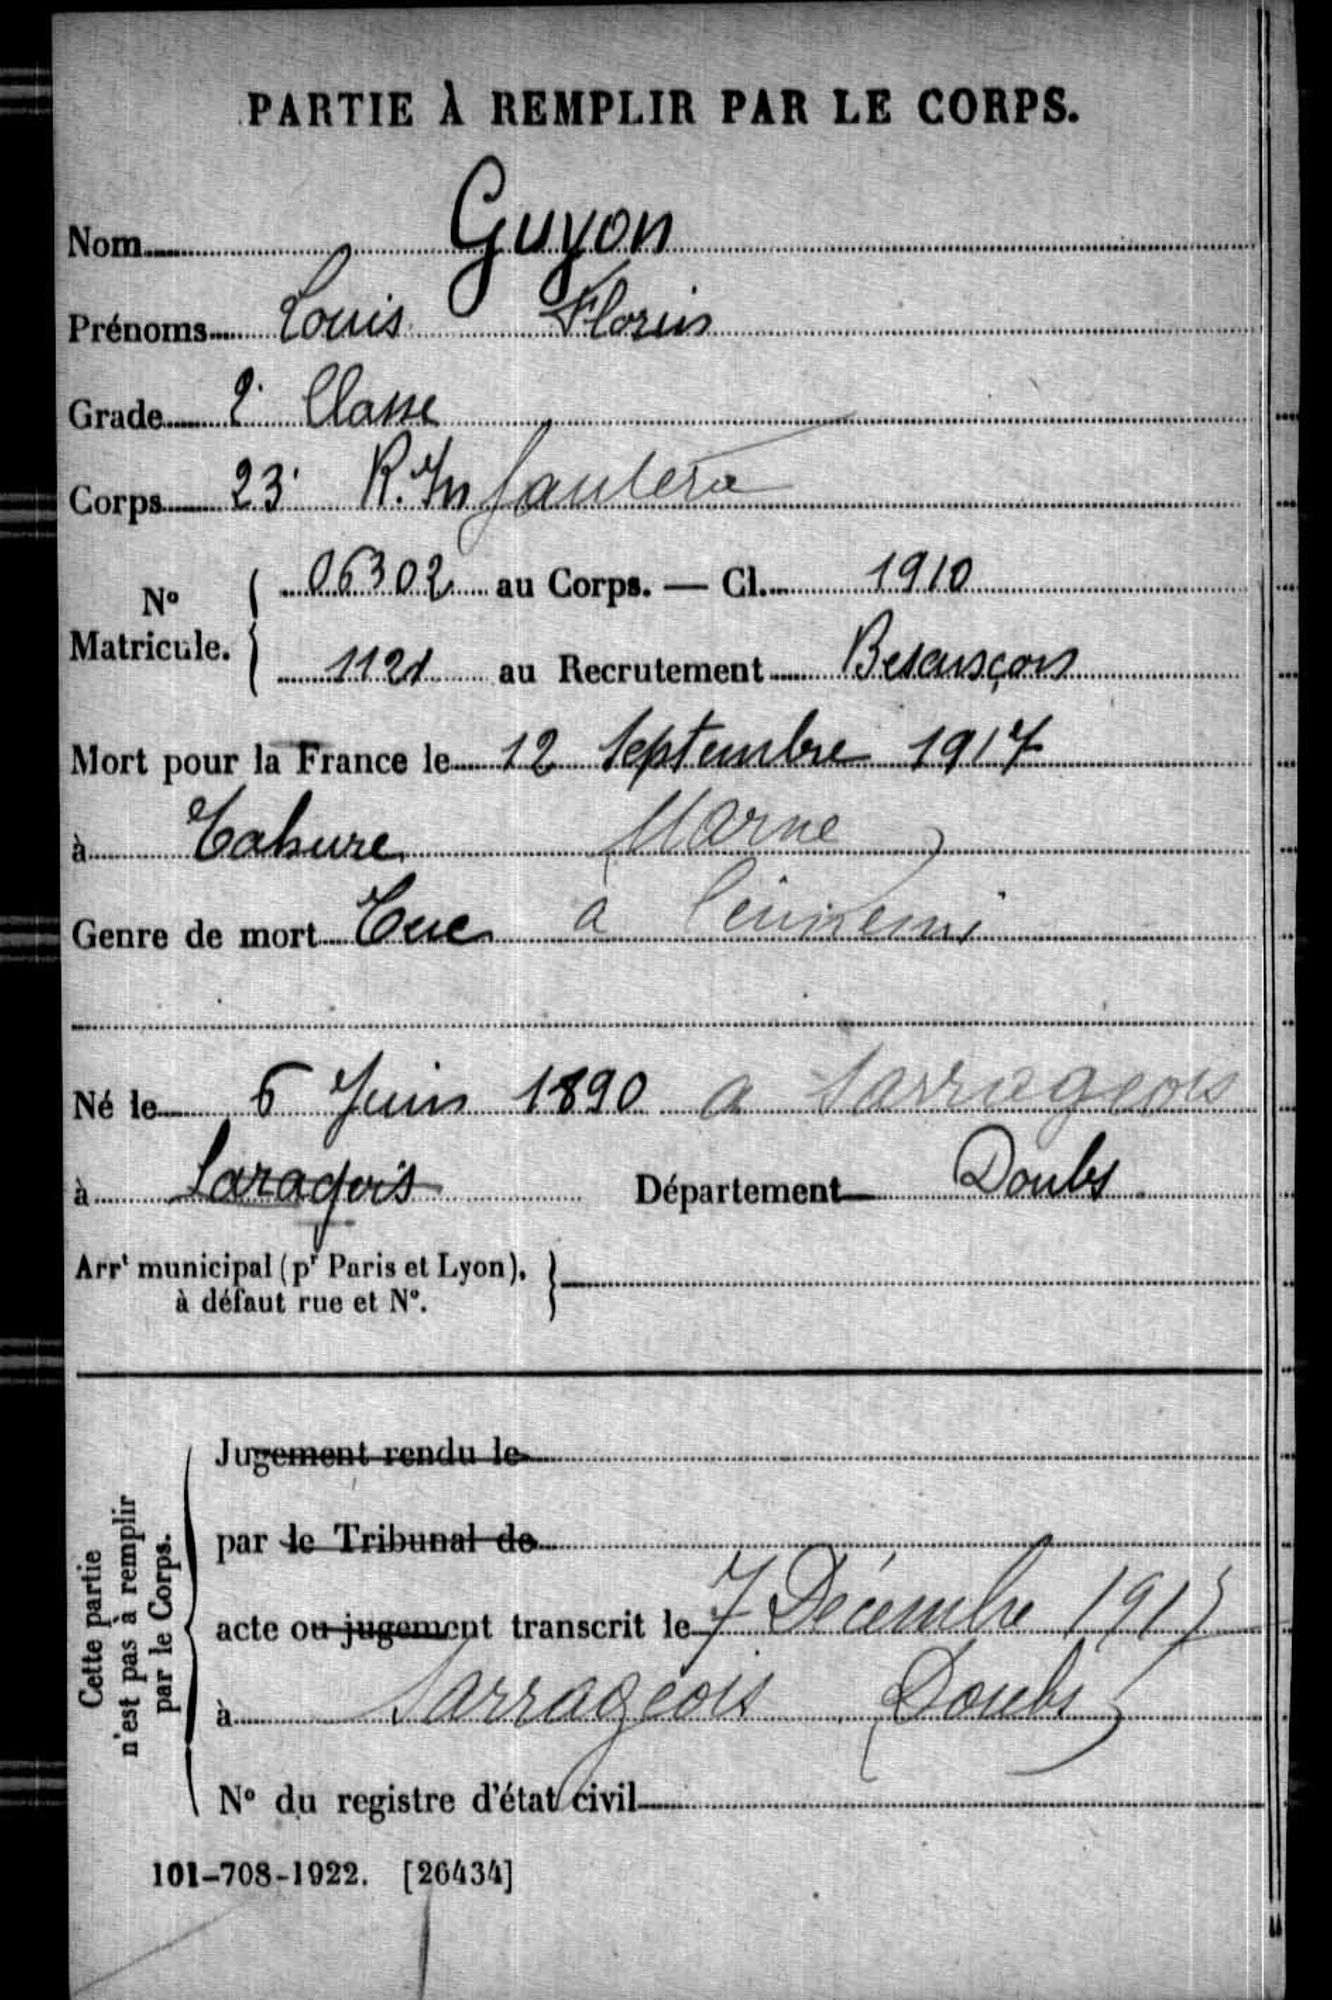 PARTIE À REMPLIR PAR LE CORPS.
Nom Guyon
Prénoms Louis Florin
Grade 2e Classe
Corps 23e R. Infanterie
No Matricule. { 06302 au Corps. — Cl. 1910
1121 au Recrutement Besançon
Mort pour la France le 12 Septembre 1917
à Tahure (Marne)
Genre de mort Tué à l'ennemi
Né le 6 Juin 1890 a Sarrageois
à Saragois Département Doubs
Arrt municipal (pr Paris et Lyon), }
à défaut rue et No.
Cette partie
n'est pas à remplir
par le Corps.
Jugement rendu le
par le Tribunal de
acte ou jugement transcrit le 7 Décembre 1917
à Sarrageois (Doubs)
No du registre d'état civil
101-708-1922. [26434]